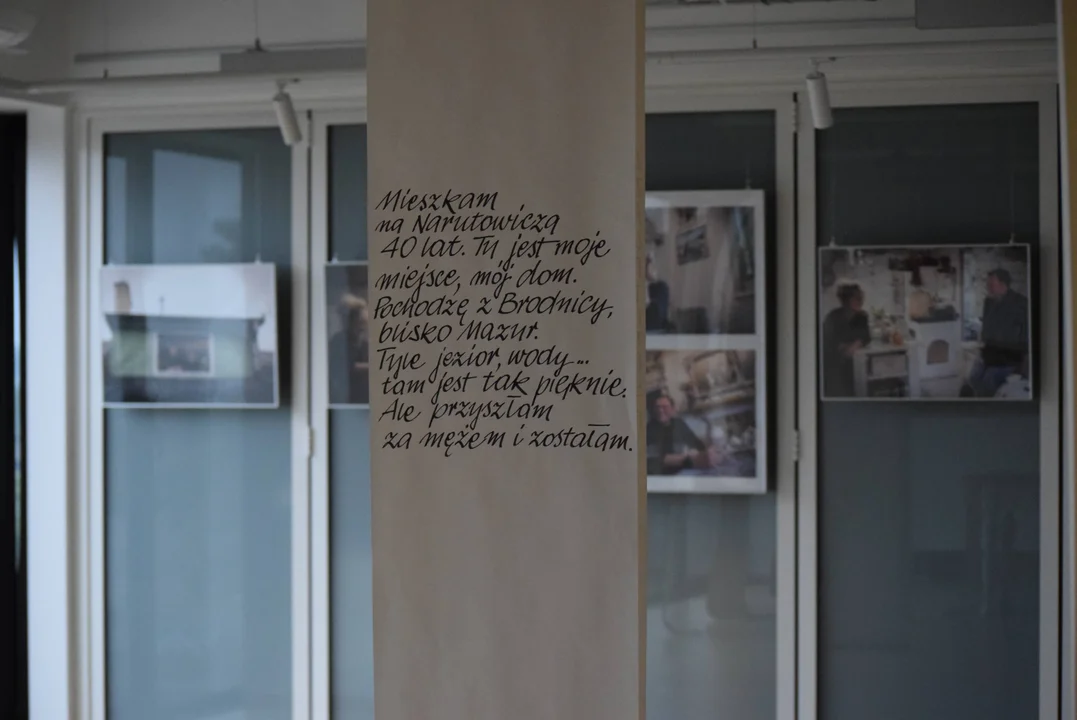 Mieszkam
na Narutowicza
40 lat. Tu jest moje
miejsce, mój dom.
Pochodzę z Brodnicy,
blisko Mazur.
Tyle jezior, wody...
tam jest tak pięknie.
Ale przyszłam
za mężem i zostałam.